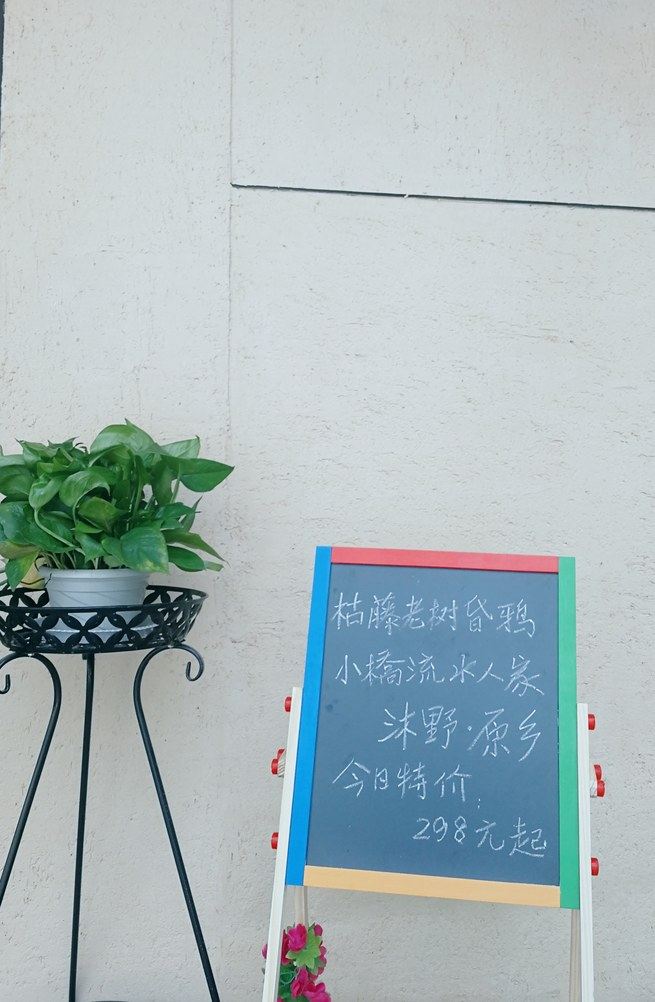 枯藤老树昏鸦
小橋流水人家
沐野·原乡
今日特价:
298元起